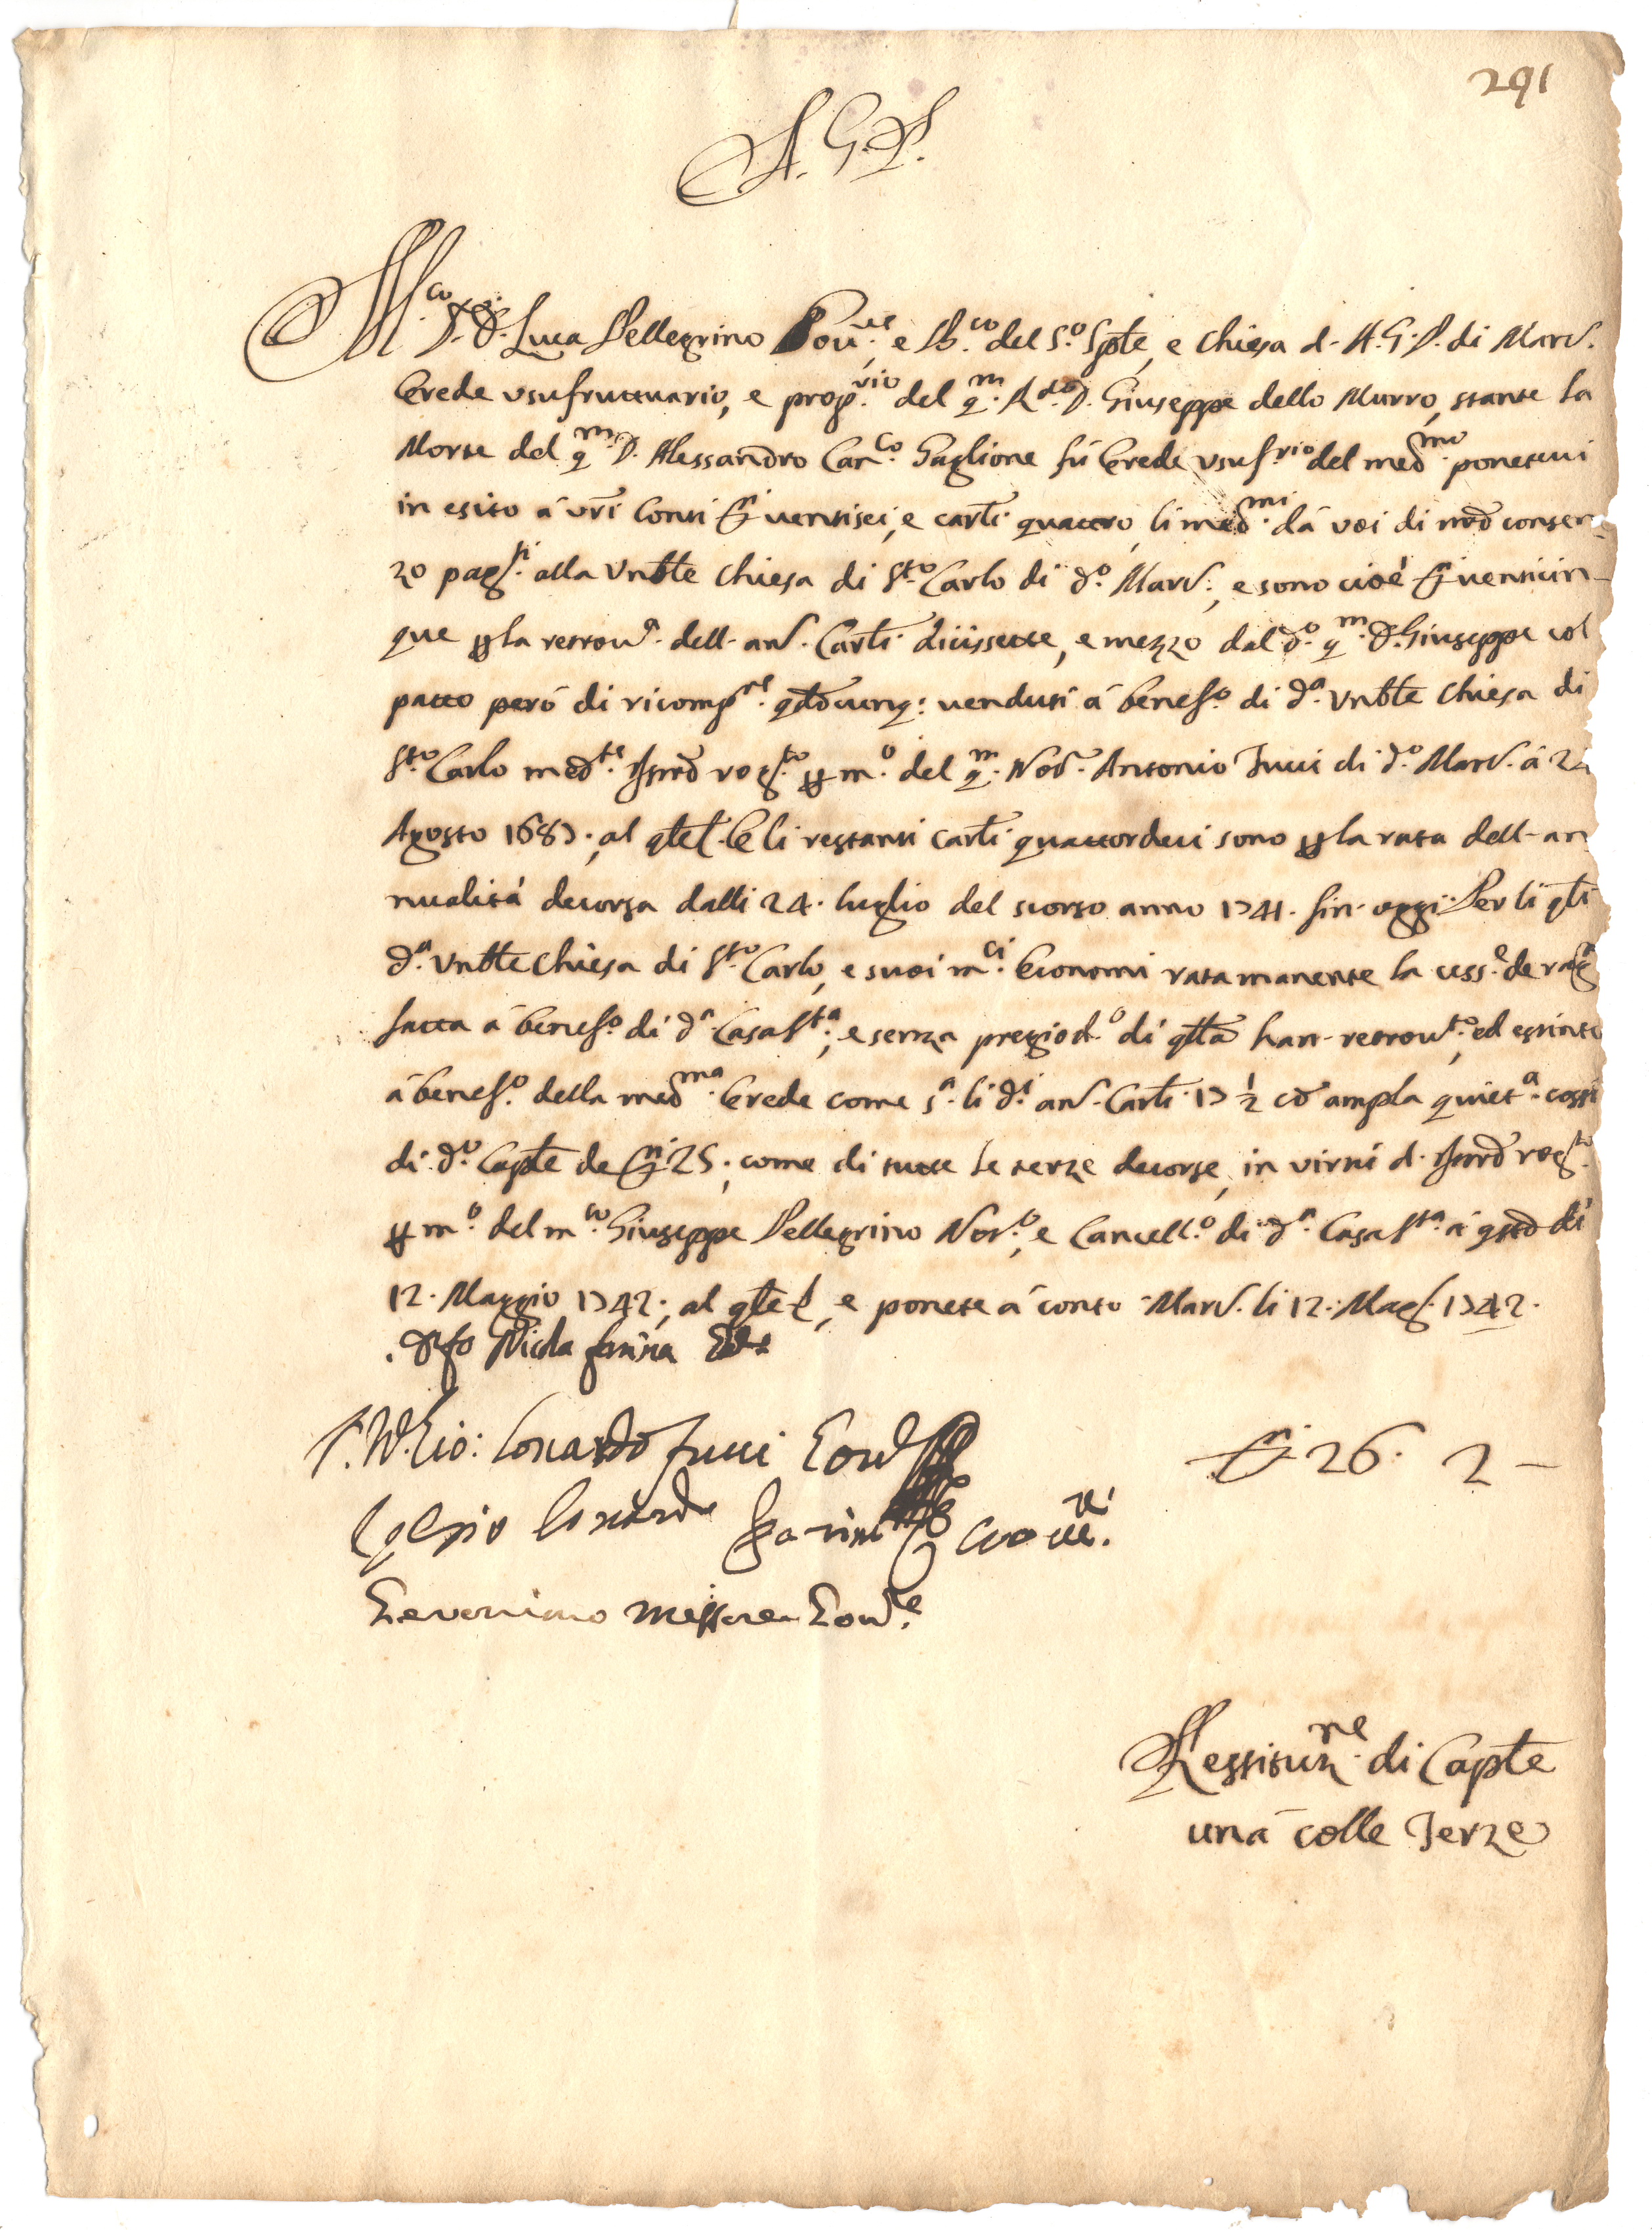 291
A. G. P.
M.co D.r D. Luca Pellegrino Gov.re, e Pb.co del S.o Spte, e Chiesa d. A. G. P. di Marc.
Erede usufruttuario, e prop.rio del q.m R.do D. Giuseppe dello Murro, stante la
Morte del q.m D. Alessandro Can.co Guglione fù Erede usuf.rio del med.mo ponetevi
in esito á vri Conti D.ti ventisei, e carli quattro, li med.mi dá voi di nro consen-
zo pag.ti alla Vnble Chiesa di S.to Carlo di d.o Marc., e sono cioé D.ti venticin-
que p la retrov.a dell. an. Carli diicissette, e mezzo dal d.o q.m D. Giuseppe col
patto peró di ricomp.re qdocunq: venduti á benef.o di d.a Vnble Chiesa di
S.to Carlo med.te Istro rog.to p m.o del q.m Not.r Antonio Iuci di d.o Marc. á 24
Agosto 1687., al qle &. E li restanti carli quattordeci sono p la rata dell. an
nualitá decorsa dalli 24. luglio del scorso anno 1741. fin. oggi. Per li qli
d.a Vnble Chiesa di S.to Carlo, e suoi m.ci Economi rata manente la cess.e de rag.
fatta á benef.o di d.a Casa S.ta, e senza pregiod.o di qlla han. retrov.to, ed estinto
á benef.o della med.ma Erede come s.a li d.i an. Carli 17 1/2 co ampla quiet.a cossi
di d.o Caple de D.ti 25., come di tutte le terze decorse, in virtú d. Istro rog.to
p m.o del m.co Giuseppe Pellegrino Not.o, e Cancell.o di d.a Casa S.ta á qsto di
12. Maggio 1742., al qle &, e ponete á conto. Marc. li 12. Mag. 1742.
Nicola
Lonardo Iuci Gov.
D.ti 26. 2 —
Lonardo Gov.re
Geronimo Messere Gov.e
Restituz.ne di Caple
una colle Terze